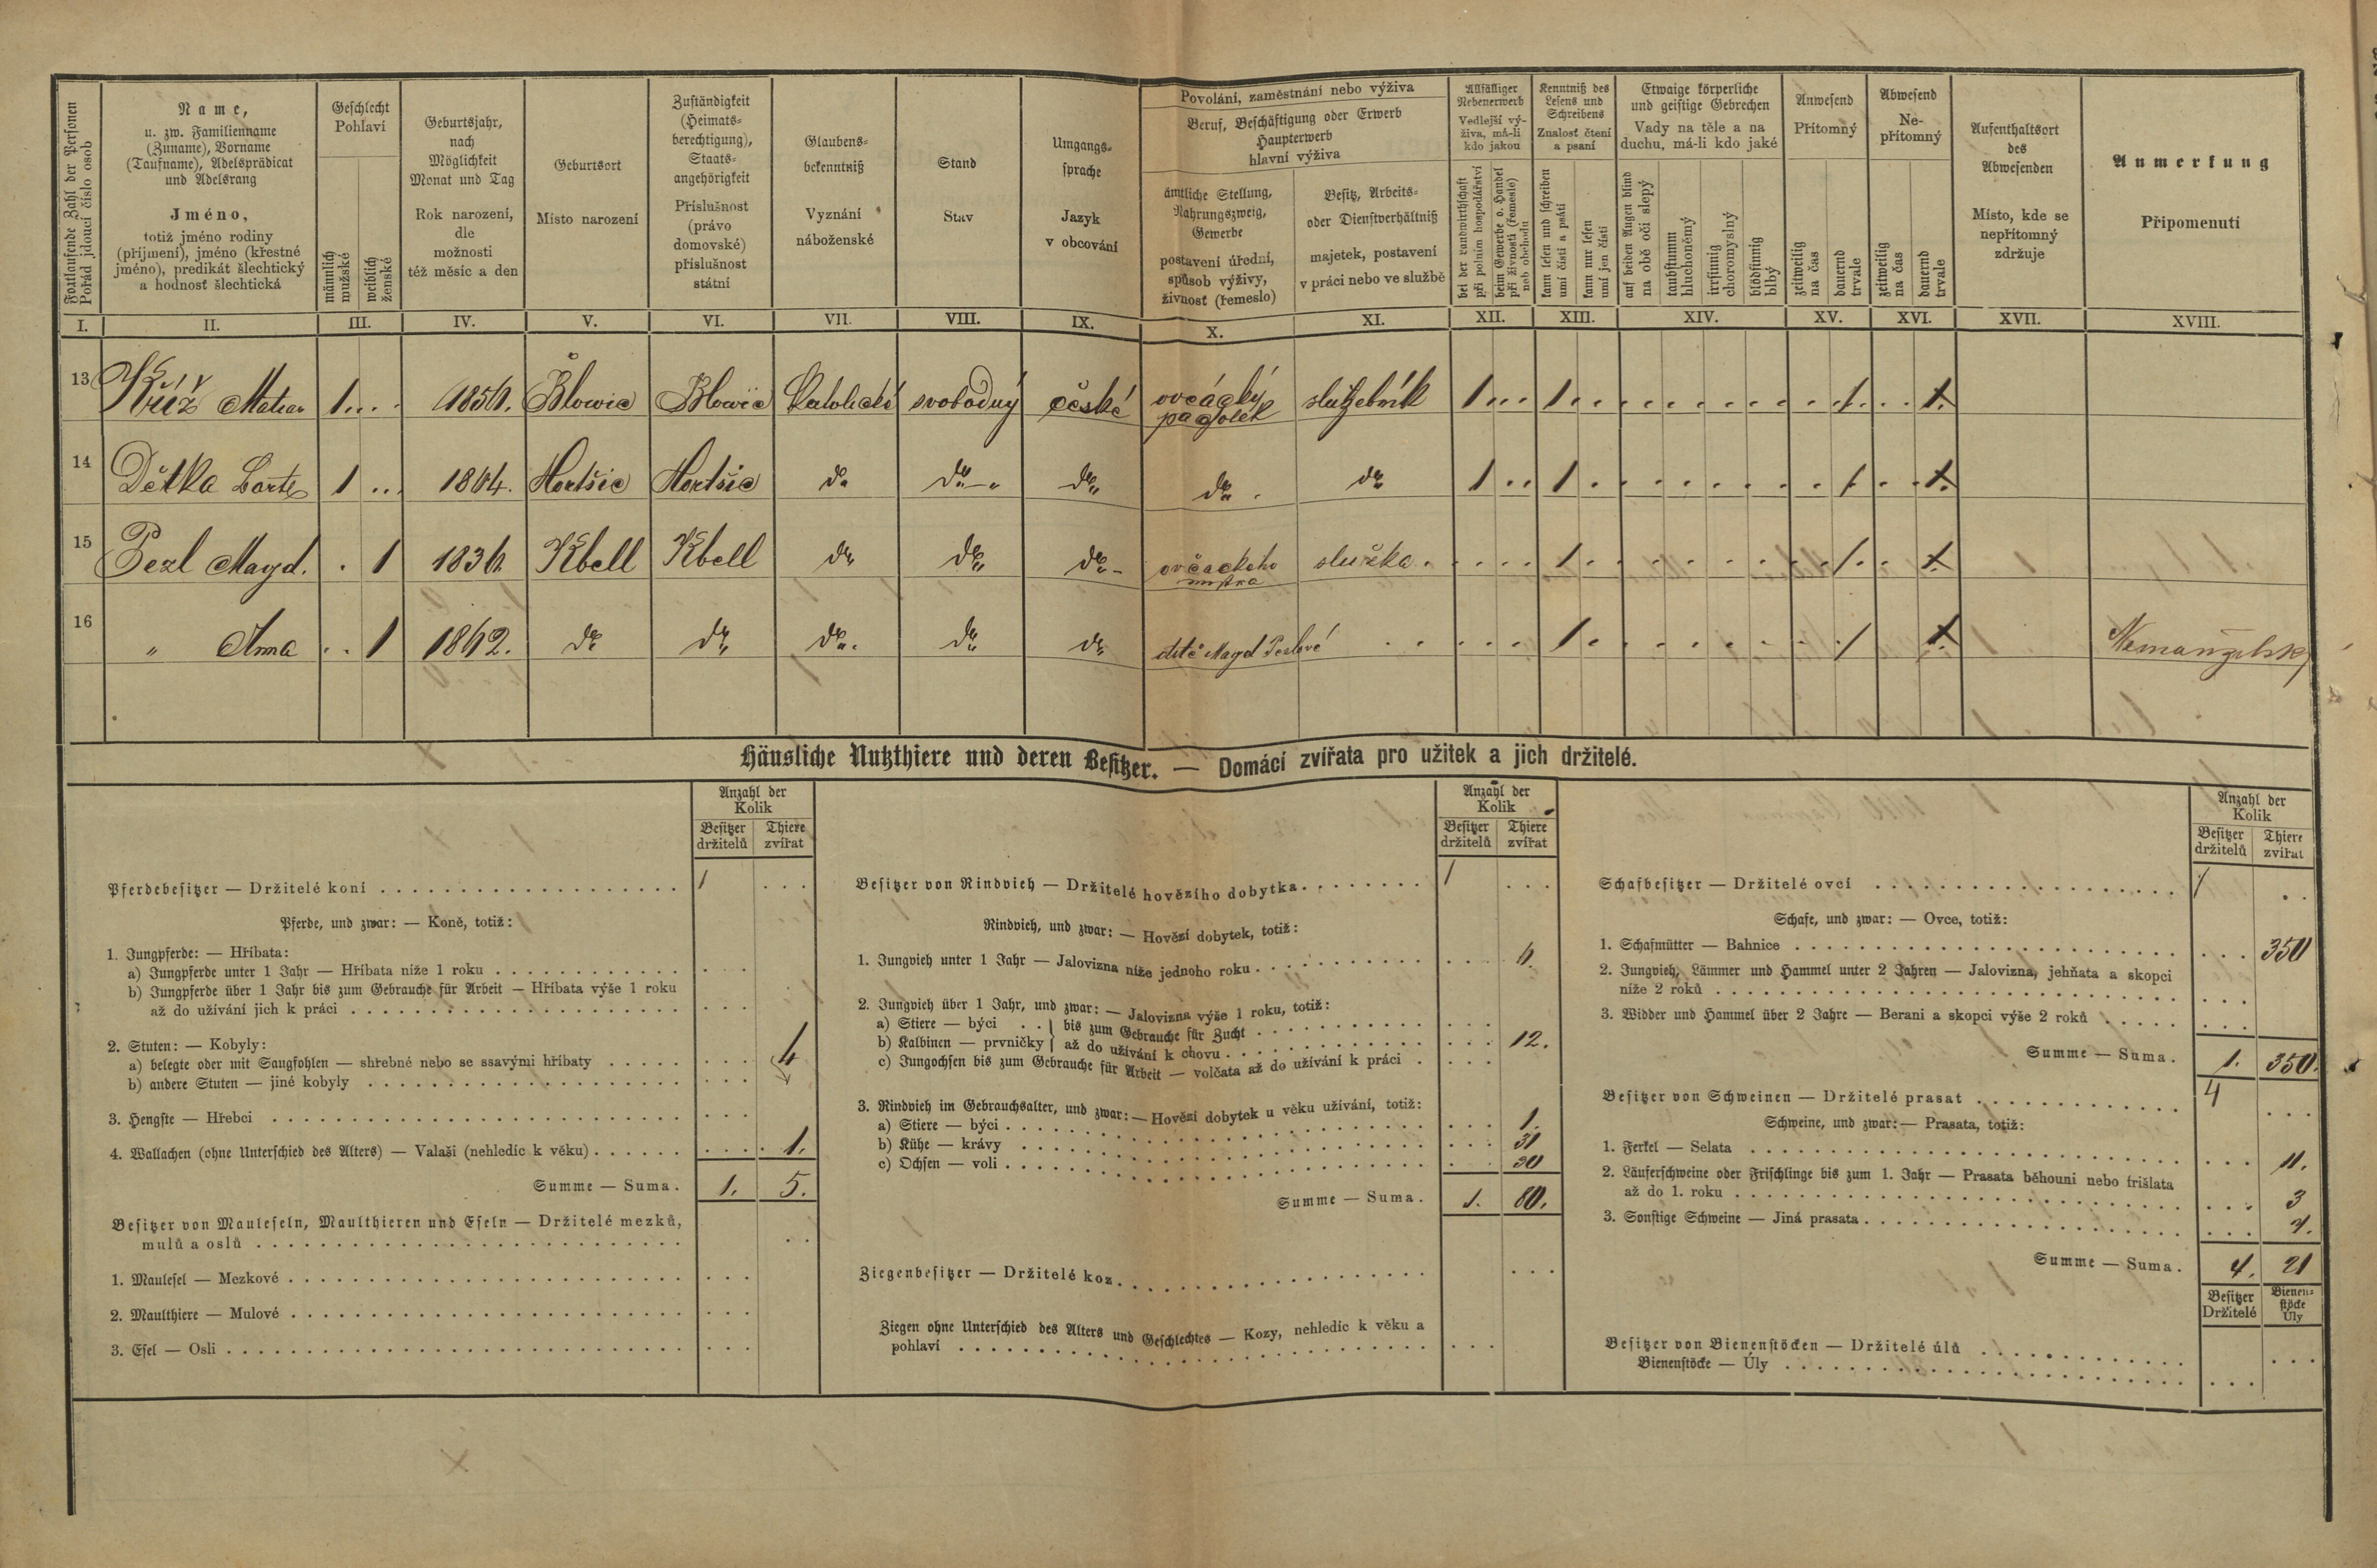 Fortlaufende Zahl der Personen
Pořád jdoucí číslo osob
Name,
u. zw. Familienname
(Zuname), Vorname
(Taufname), Adelsprädicat
und Adelsrang
Jméno,
totiž jméno rodiny
(příjmení), jméno (křestné
jméno), predikát šlechtický
a hodnosť šlechtická
Geschlecht
Pohlaví
männlich
mužské
weiblich
ženské
Geburtsjahr,
nach
Möglichkeit
Monat und Tag
Rok narození,
dle
možnosti
též měsíc a den
Geburtsort
Místo narození
Zuständigkeit
(Heimats-
berechtigung),
Staats-
angehörigkeit
Příslušnost
(právo
domovské)
příslušnost
státní
Glaubens-
bekenntniß
Vyznání
náboženské
Stand
Stav
Umgangs-
sprache
Jazyk
v obcování
Povolání, zaměstnání nebo výživa
Beruf, Beschäftigung oder Erwerb
Haupterwerb
hlavní výživa
ämtliche Stellung,
Nahrungszweig,
Gewerbe
postavení úřední,
spůsob výživy,
živnosť (řemeslo)
Besitz, Arbeits-
oder Dienstverhältniß
majetek, postavení
v práci nebo ve službě
Allfälliger
Nebenerwerb
Vedlejší vý-
živa, má-li
kdo jakou
bei der Landwirthschaft
při polním hospodářství
beim Gewerbe o. Handel
při živnosti (řemesle)
neb obchodu
Kenntniß des
Lesens und
Schreibens
Znalosť čtení
a psaní
kann lesen und schreiben
umí čísti a psáti
kann nur lesen
umí jen čísti
Etwaige körperliche
und geistige Gebrechen
Vady na těle a na
duchu, má-li kdo jaké
auf beiden Augen blind
na obě oči slepý
taubstumm
hluchoněmý
irrsinnig
choromyslný
blödsinnig
blbý
Anwesend
Přítomný
zeitweilig
na čas
dauernd
trvale
Abwesend
Ne-
přítomný
zeitweilig
na čas
dauernd
trvale
Aufenthaltsort
des
Abwesenden
Místo, kde se
nepřítomný
zdržuje
Anmerkung
Připomenutí
I. II. III. IV. V. VI. VII. VIII. IX. X. XI. XII. XIII. XIV. XV. XVI. XVII. XVIII.
13 Kříž 1 Blowic Blowic Katolické svobodný české ovčácký služebník 1 1 1 1
14 Dětka 1 1864. do do do do do 1 1 1 1
15 Pezl Magd. 1 Kbell Kbell do do do ovčáckého služka 1 1 1
mistra
16 " Anna 1 1862. do do do do do dítě Magd Pezlové 1 1 1
Häusliche Nutzthiere und deren Besitzer. — Domácí zvířata pro užitek a jich držitelé.
Anzahl der
Kolik
Besitzer
držitelů
Thiere
zvířat
Pferdebesitzer — Držitelé koní 1
Pferde, und zwar: — Koně, totiž:
1. Jungpferde: — Hříbata:
a) Jungpferde unter 1 Jahr — Hříbata níže 1 roku
b) Jungpferde über 1 Jahr bis zum Gebrauche für Arbeit — Hříbata výše 1 roku
až do užívání jich k práci
2. Stuten: — Kobyly:
a) belegte oder mit Saugfohlen — shřebné nebo se ssavými hříbaty 4
b) andere Stuten — jiné kobyly
3. Hengste — Hřebci
4. Wallachen (ohne Unterschied des Alters) — Valaši (nehledíc k věku) 1.
Summe — Suma. 1. 5.
Besitzer von Mauleseln, Maulthieren und Eseln — Držitelé mezků,
mulů a oslů
1. Maulesel — Mezkové
2. Maulthiere — Mulové
3. Esel — Osli
Anzahl der
Kolik
Besitzer
držitelů
Thiere
zvířat
Besitzer von Rindvieh — Držitelé hovězího dobytka 1
Rindvieh, und zwar: — Hovězí dobytek, totiž:
1. Jungvieh unter 1 Jahr — Jalovizna níže jednoho roku 6.
2. Jungvieh über 1 Jahr, und zwar: — Jalovizna výše 1 roku, totiž:
a) Stiere — býci } bis zum Gebrauche für Zucht
b) Kalbinen — prvničky } až do užívání k chovu 12.
c) Jungochsen bis zum Gebrauche für Arbeit — volčata až do užívání k práci
3. Rindvieh im Gebrauchsalter, und zwar: — Hovězí dobytek u věku užívání, totiž:
a) Stiere — býci 1.
b) Kühe — krávy 31
c) Ochsen — voli 30
Summe — Suma. 1. 80.
Ziegenbesitzer — Držitelé koz
Ziegen ohne Unterschied des Alters und Geschlechtes — Kozy, nehledíc k věku a
pohlaví
Anzahl der
Kolik
Besitzer
držitelů
Thiere
zvířat
Schafbesitzer — Držitelé ovcí 1
Schafe, und zwar: — Ovce, totiž:
1. Schafmütter — Bahnice 350
2. Jungvieh, Lämmer und Hammel unter 2 Jahren — Jalovizna, jehňata a skopci
níže 2 roků
3. Widder und Hammel über 2 Jahre — Berani a skopci výše 2 roků
Summe — Suma. 1. 350.
Besitzer von Schweinen — Držitelé prasat 4
Schweine, und zwar: — Prasata, totiž:
1. Ferkel — Selata 11.
2. Läuferschweine oder Frischlinge bis zum 1. Jahr — Prasata běhouni nebo frišlata
až do 1. roku 3
3. Sonstige Schweine — Jiná prasata 7.
Summe — Suma. 4. 21
Besitzer
Držitelé
Bienen-
stöcke
Úly
Besitzer von Bienenstöcken — Držitelé úlů
Bienenstöcke — Úly